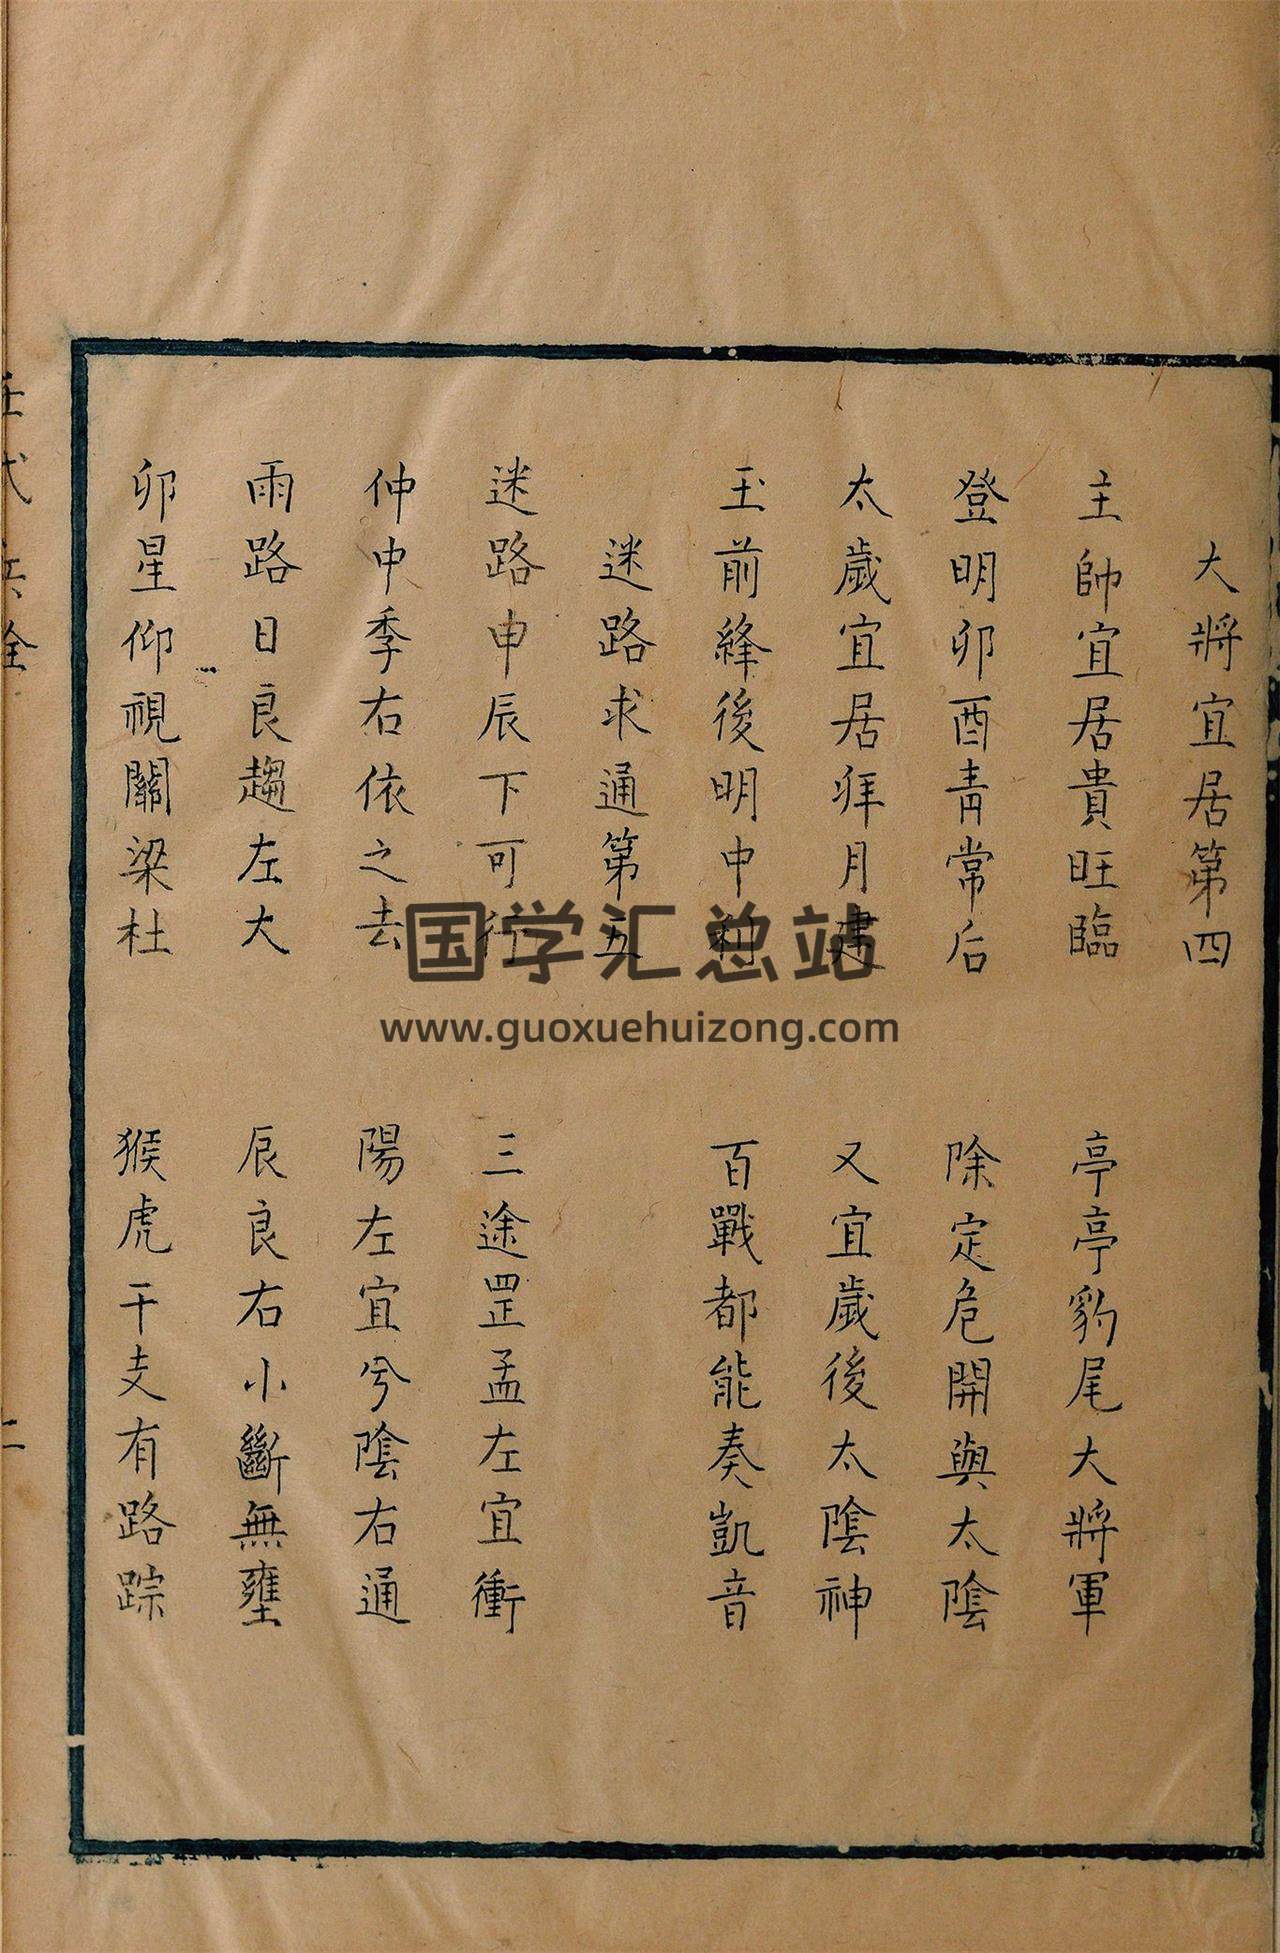 大將宜居第四
主帥宜居貴旺臨　亭亭豹尾大將軍
登明卯酉青常后　除定危開與太陰
太歲宜居拜月建　又宜歲後太陰神
玉前絳後明中利　百戰都能奏凱音
迷路求通第五
迷路申辰下可行　三途罡孟左宜衝
仲中季右依之去　陽左宜兮陰右通
雨路日良趨左大　辰良右小斷無壅
卯星仰視關梁杜　猴虎干支有路踪
国学汇总站
www.guoxuehuizong.com